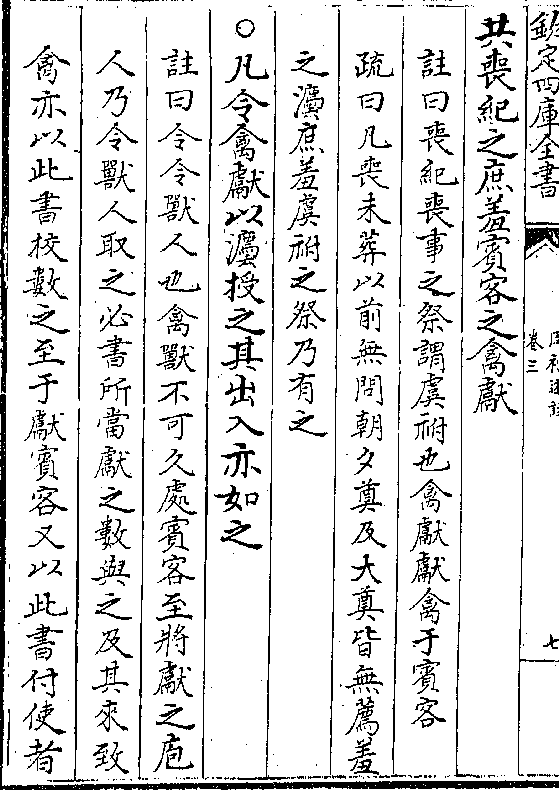 欽定四庫全書
卷三
七
共喪紀之庶羞賓客之禽獻
註曰喪紀喪事之祭謂虞祔也禽獻獻禽于賓客
疏曰凡喪未葬以前無問朝夕奠及大奠皆無薦羞
之灋庶羞虞祔之祭乃有之
○凡令禽獻以灋授之其出入亦如之
註曰令令獸人也禽獸不可久處賓客至將獻之庖
人乃令獸人取之必書所當獻之數與之及其來致
禽亦以此書校數之至于獻賓客又以此書付使者